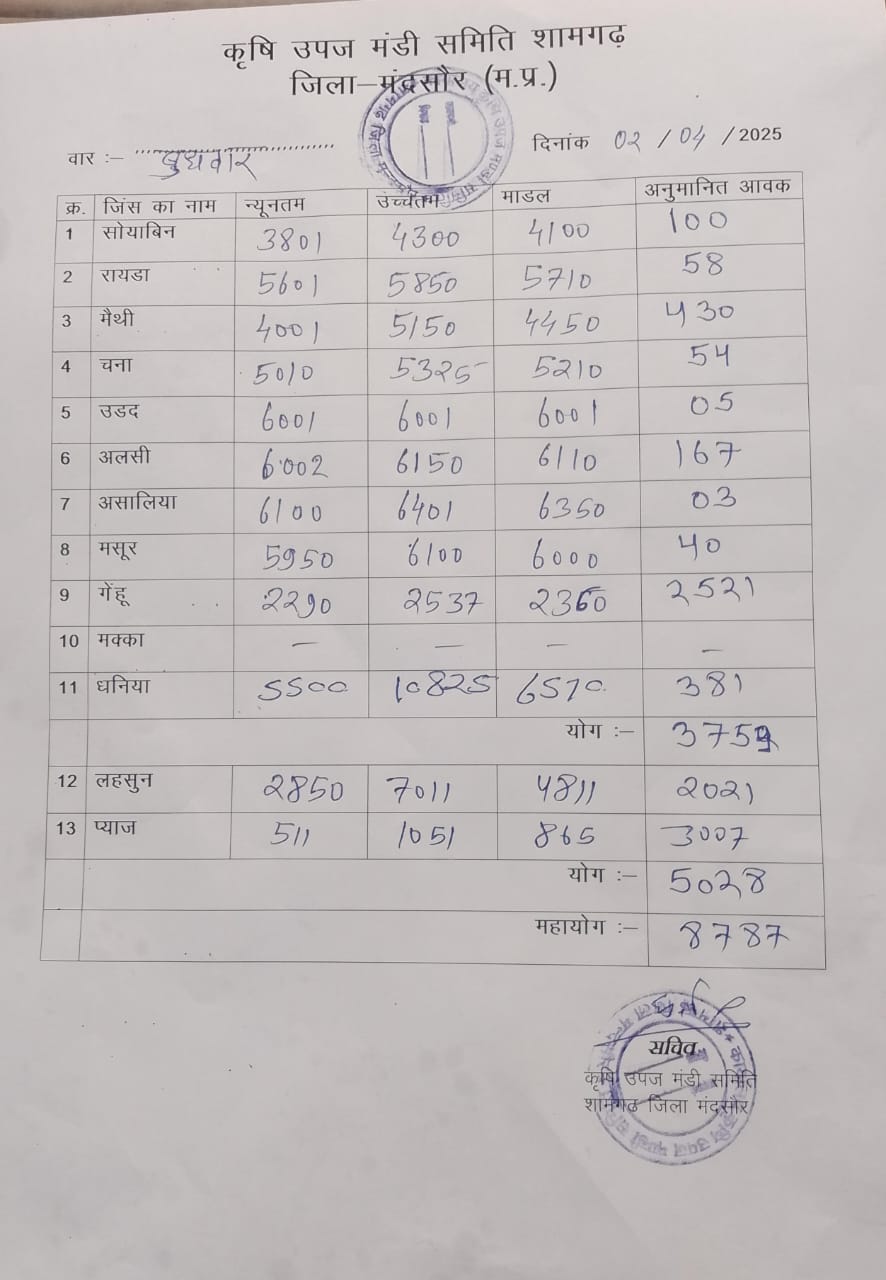 कृषि उपज मंडी समिति शामगढ़
जिला–मंदसौर (म.प्र.)
वार :– बुधवार दिनांक 02 / 04 / 2025
क्र. जिंस का नाम न्यूनतम उच्चतम माडल अनुमानित आवक
1 सोयाबिन 3801 4300 4100 100
2 रायडा 5601 5850 5710 58
3 मैथी 4001 5150 4450 430
4 चना 5010 5325 5210 54
5 उडद 6001 6001 6001 05
6 अलसी 6002 6150 6110 167
7 असालिया 6100 6401 6350 03
8 मसूर 5950 6100 6000 40
9 गेंहू 2290 2537 2360 2521
10 मक्का – – – –
11 धनिया 5500 10825 6570 381
योग :– 3759
12 लहसुन 2850 7011 4811 2021
13 प्याज 511 1051 865 3007
योग :– 5028
महायोग :– 8787
सचिव
कृषि उपज मंडी समिति
शामगढ जिला मंदसौर